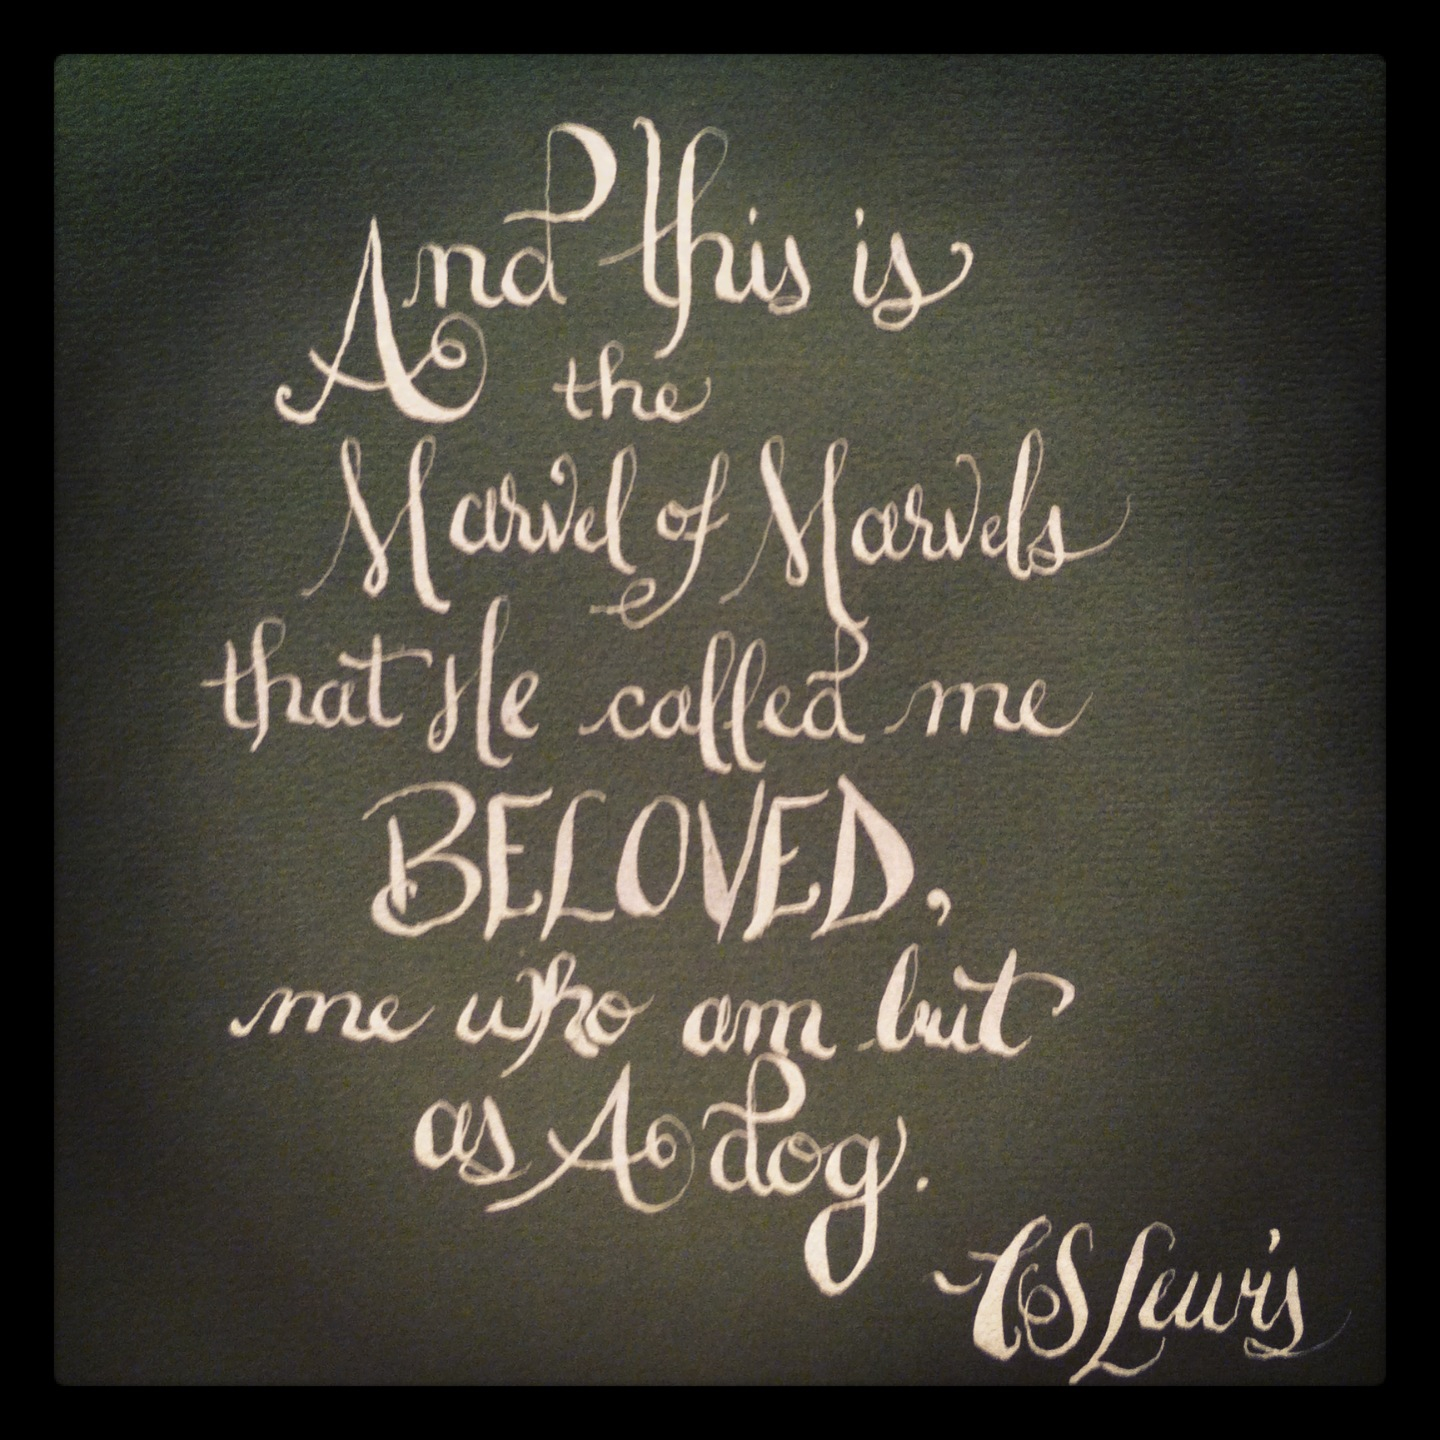 And this is
the
Marvel of Marvels
that He called me
BELOVED,
me who am but
as A dog.
- CS Lewis